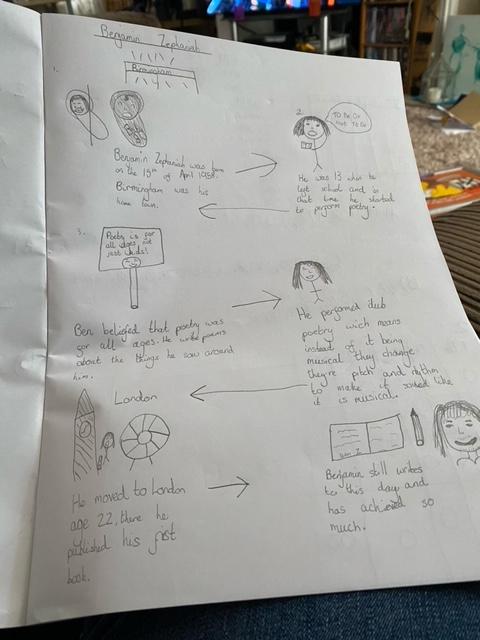 Benjamin Zephaniah
Birmingham
1.
Benjamin Zephaniah was born
on the 15th of April 1958.
Birmingham was his
home town.
2.
TO Be Or
Not To Be
He was 13 when he
left school and in
that time he started
to perform poetry.
3.
Poetry is for
all ages not
just kids!
Ben beliefed that poetry was
for all ages. He write poems
about the things he saw around
him.
He performed dub
poetry wich means
instead of it being
musical they change
they're pitch and rhythm
to make it sound like
it is musical.
London
He moved to London
age 22, there he
published his first
book.
Benjamin still writes
to this day and
has achieved so
much.